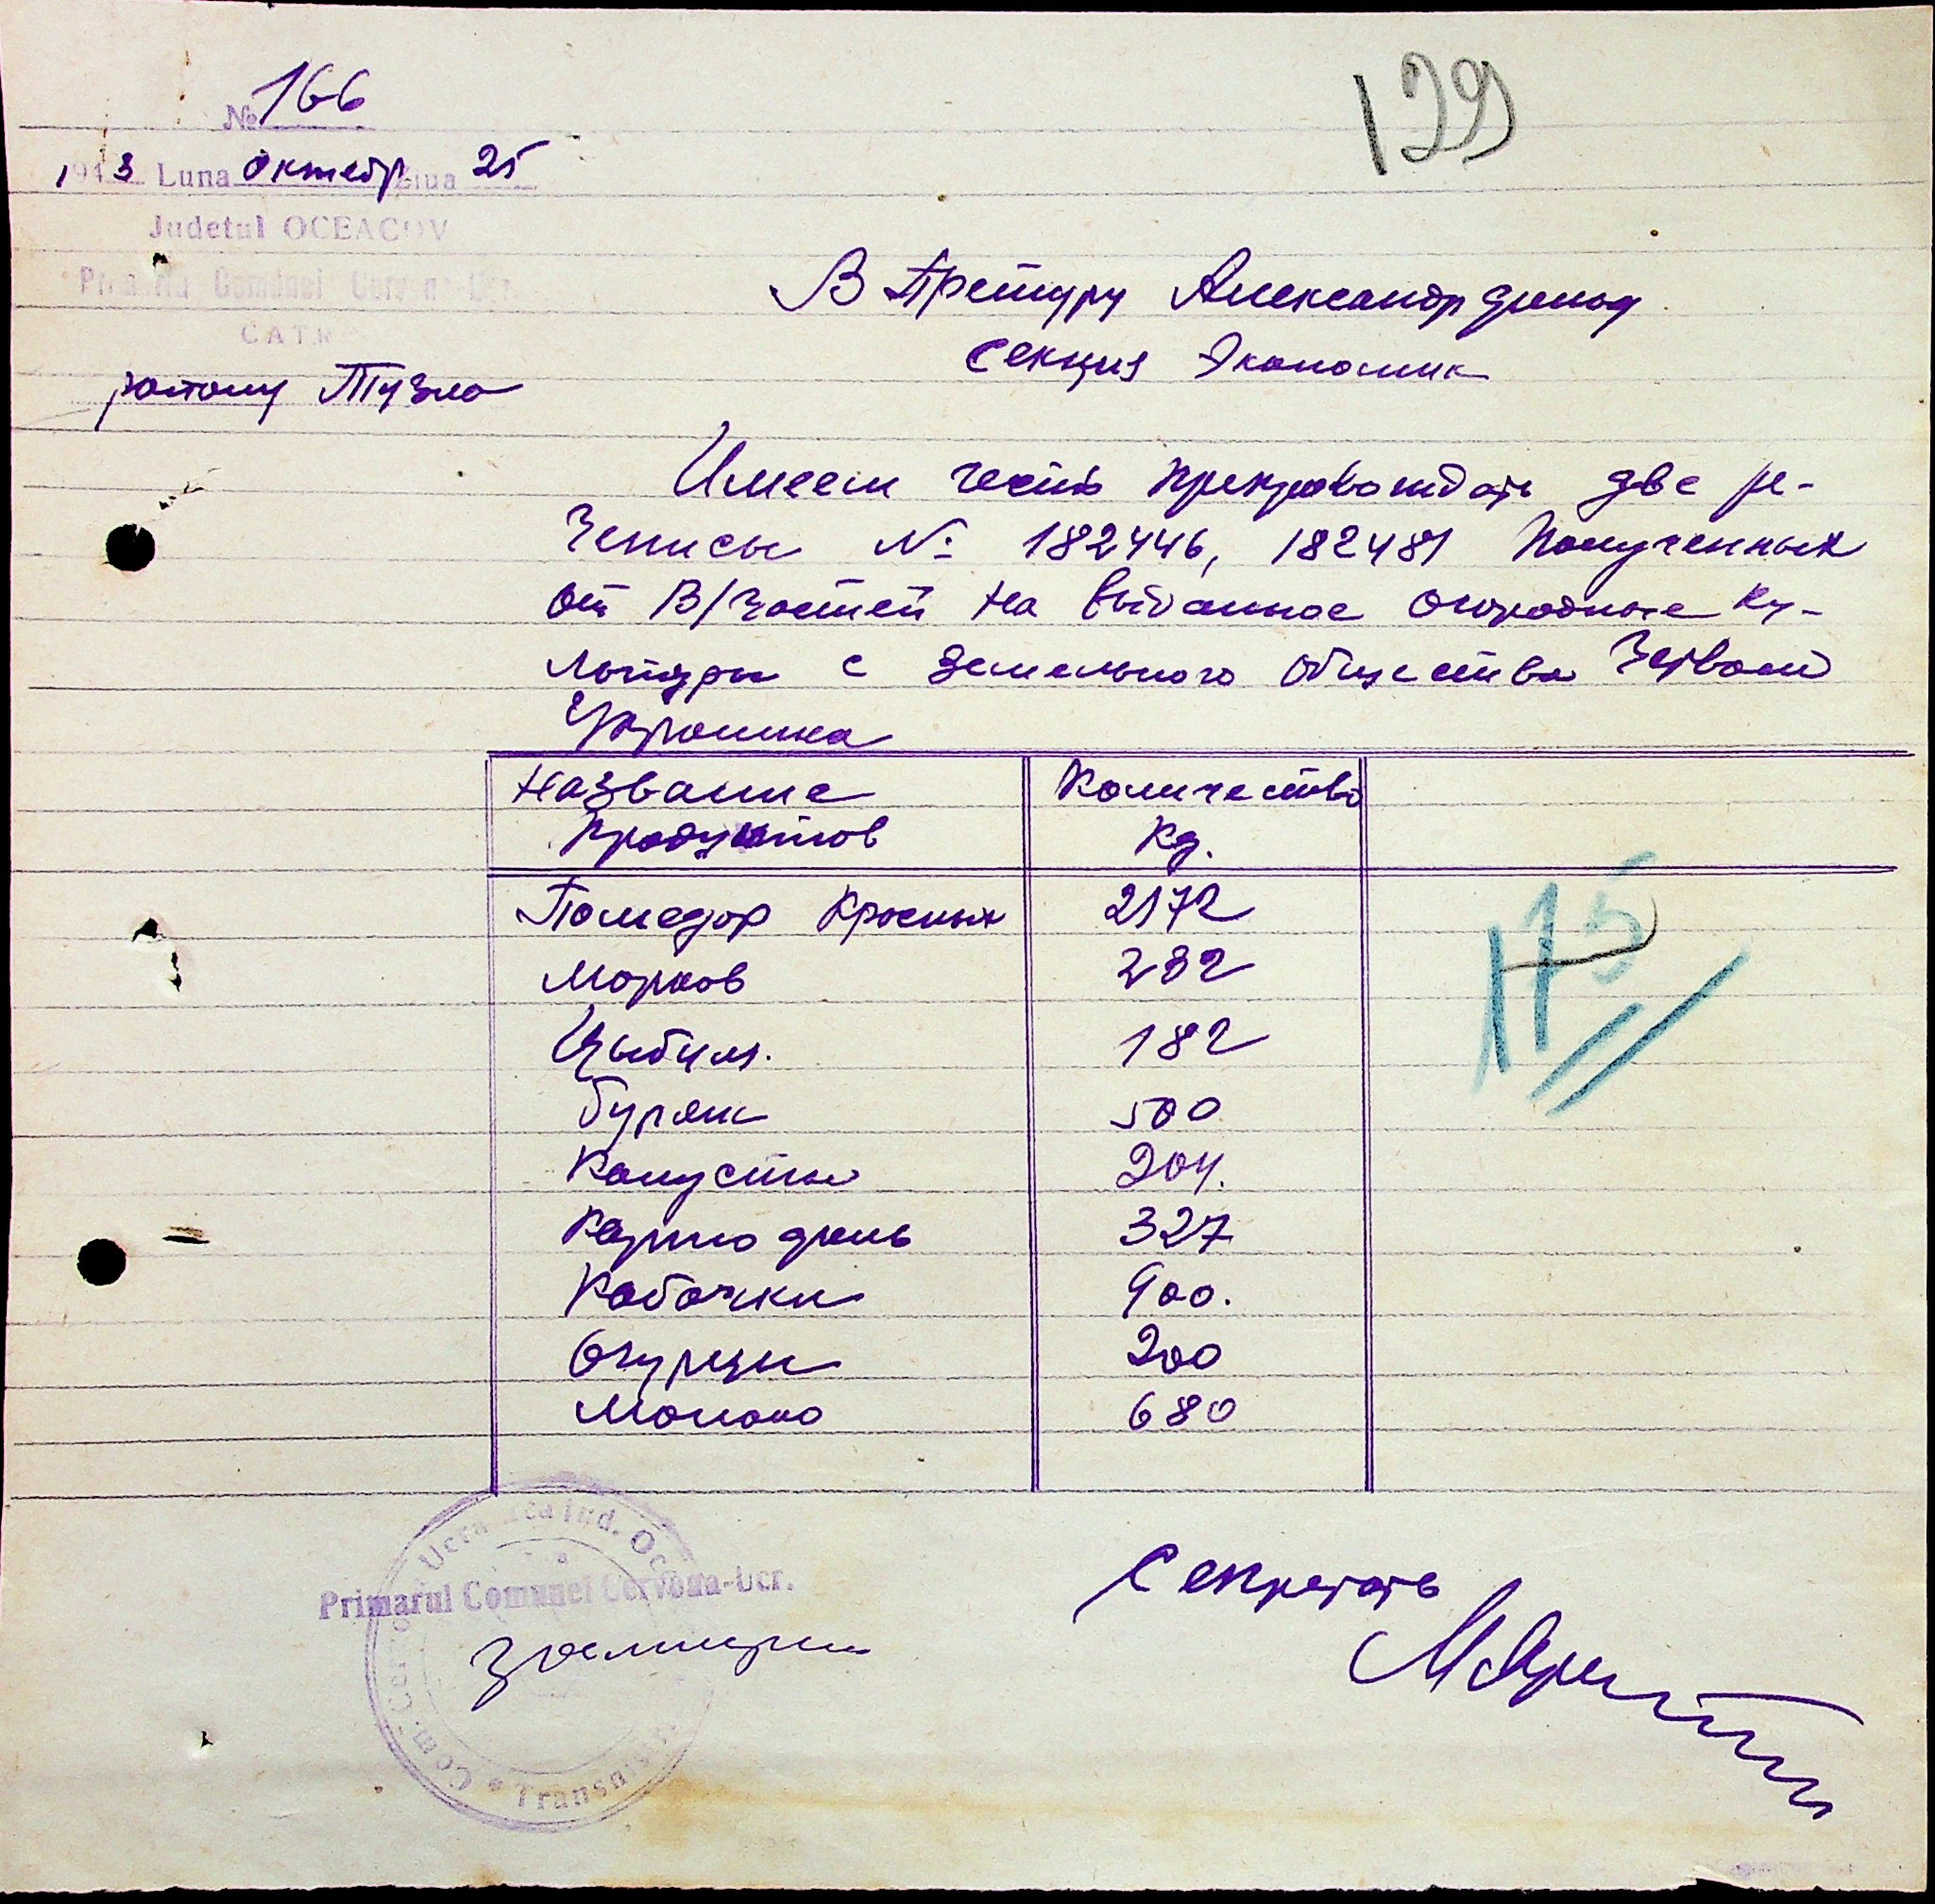 № 166
129
1943 Luna Октябр Ziua 25
Judetul OCEACOV
Primaria Comunei Cervona-Ucr.
CATRE
В Претуру Александрфельд
Секция Экономик
району Тузла
Имеем честь препровождать две ре-
чеписы № 182446, 182481 Полученных
от В/частей на выданное огородные ку-
льтуры с Земельного общества Червона
Украинка
Название Количество
Продуктов Кг.
Помедор Красных 2172
Морков 232
Цыбуля. 182
Буряк 500
Капусты 204.
Картофель 327
Кабачки 900.
Огурцы 200
Молоко 680
175
Primarul Comunei Cervona-Ucr.
Com. Cervona Ucrainca Jud. Oceacov * Transnistria
Секретарь